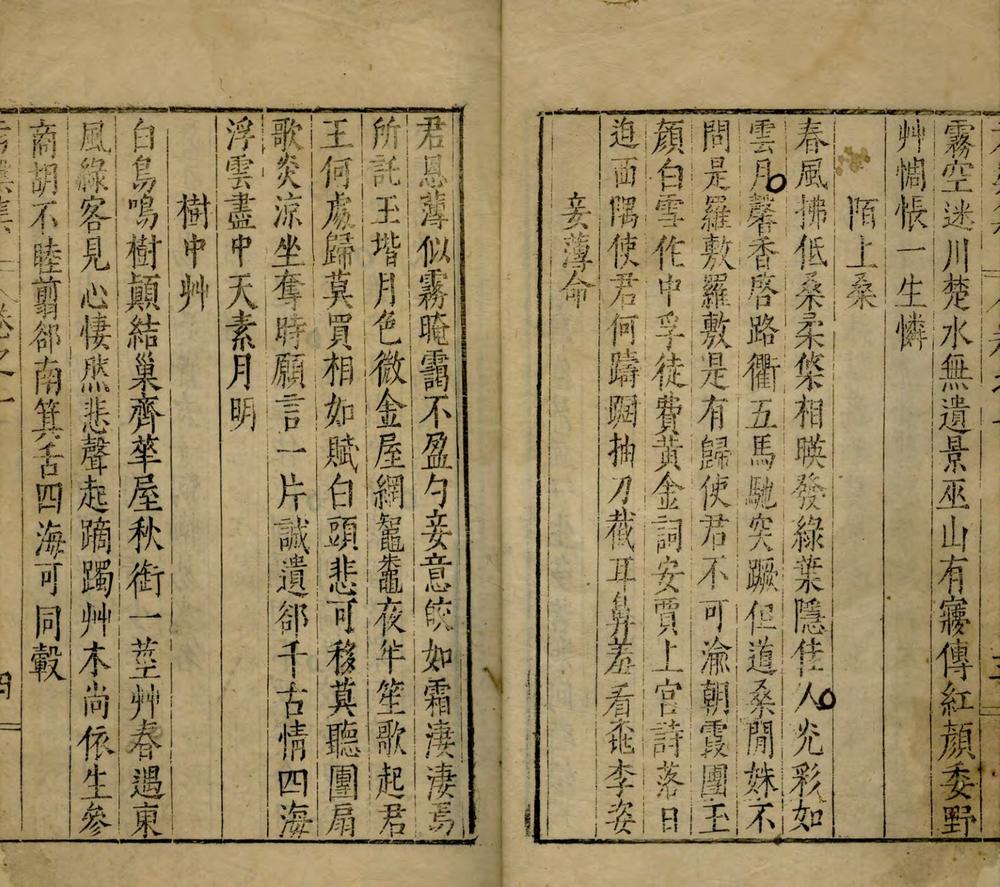 霧空迷川楚水無遺景巫山有寢傳紅顏委野
艸惆悵一生憐
陌上桑
春風拂低桑柔條相暎發綠葉隱佳人光彩如
雲月馨香啓路衢五馬馳突蹶但道桑閒姝不
問是羅敷羅敷是有歸使君不可渝朝霞團玉
顏白雪作中孚徒費黃金詞安賈上宮詩落日
迫西隅使君何躊躕抽刀截耳鼻羞看桃李姿
妾薄命
君恩薄似霧晻靄不盈勺妾意皎如霜淒淒焉
所託玉堦月色微金屋網鼅鼄夜半笙歌起君
王何處歸莫買相如賦白頭悲可移莫聽團扇
歌炎涼坐奪時願言一片誠遺郤千古情四海
浮雲盡中天素月明
樹中艸
白鳥鳴樹顚結巢齊華屋秋銜一莖艸春遇東
風綠客見心悽然悲聲起蹢躅艸木尚依生參
商胡不睦翦郤南箕舌四海可同轂